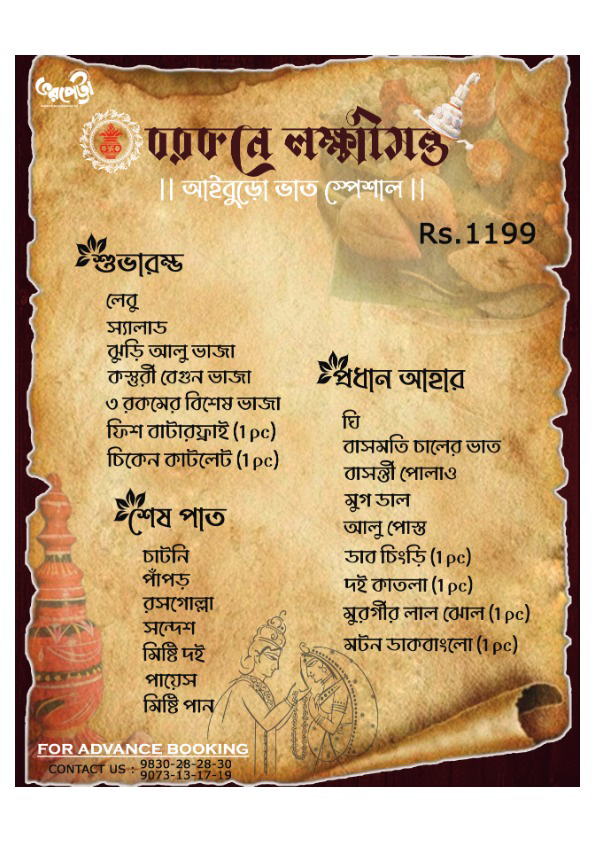 ভরপেট্টা
বরকনে লক্ষ্মীমন্ত
|| আইবুড়ো ভাত স্পেশাল ||
Rs.1199
শুভারম্ভ
লেবু
স্যালাড
ঝুড়ি আলু ভাজা
কস্তুরী বেগুন ভাজা
৩ রকমের বিশেষ ভাজা
ফিশ বাটারফ্রাই (1 pc)
চিকেন কাটলেট (1 pc)
প্রধান আহার
ঘি
বাসমতি চালের ভাত
বাসন্তী পোলাও
মুগ ডাল
আলু পোস্ত
ডাব চিংড়ি (1 pc)
দই কাতলা (1 pc)
মুরগীর লাল ঝোল (1 pc)
মটন ডাকবাংলো (1 pc)
শেষ পাত
চাটনি
পাঁপড়
রসগোল্লা
সন্দেশ
মিষ্টি দই
পায়েস
মিষ্টি পান
FOR ADVANCE BOOKING
CONTACT US : 9830-28-28-30
9073-13-17-19